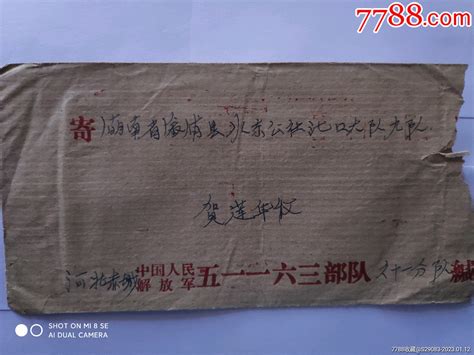 7788.com
寄 湖南省溆浦县水东公社北口大队九队
贺莲年收
河北赤城 中国人民解放军 五一一六三部队 对十一分队 缄
SHOT ON MI 8 SE
AI DUAL CAMERA
7788收藏@529083-2023.01.12